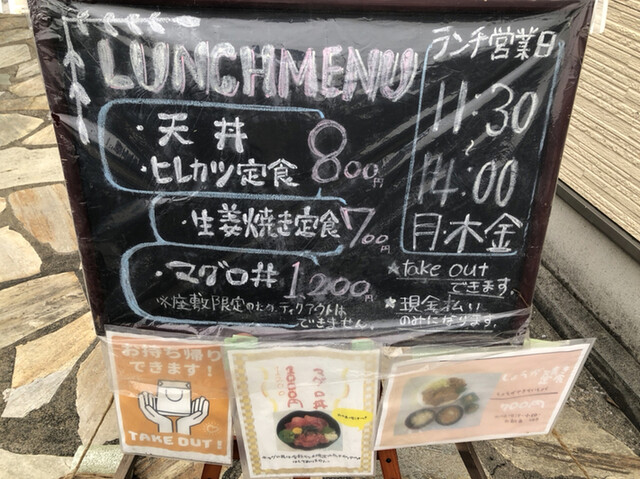 LUNCH MENU
・天丼
・ヒレカツ定食 800円
・生姜焼き定食 700円
・マグロ丼 1,200円
※座敷限定のため、テイクアウトは
できません。
ランチ営業日
11:30
〜
14:00
月・木・金
★take out
できます。
★現金払い
のみになります。
お持ち帰り
できます！
TAKE OUT!
マグロ丼